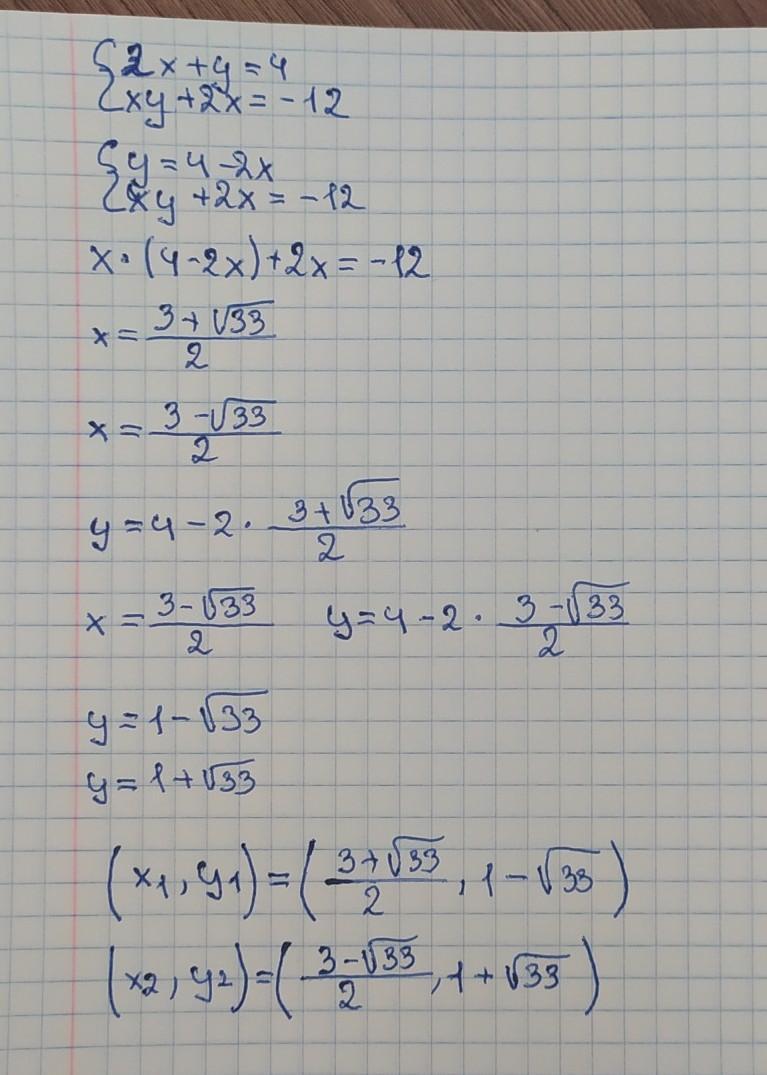 {2x+y=4
{xy+2x=-12
{y=4-2x
{xy+2x=-12
x·(4-2x)+2x=-12
x=(3+√33)/2
x=(3-√33)/2
y=4-2·(3+√33)/2
x=(3-√33)/2 y=4-2·(3-√33)/2
y=1-√33
y=1+√33
(x₁,y₁)=((3+√33)/2, 1-√33)
(x₂,y₂)=((3-√33)/2, 1+√33)